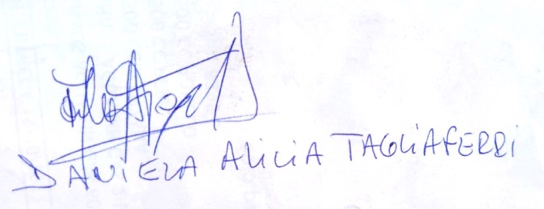 DANIELA ALICIA TAGLIAFERRI